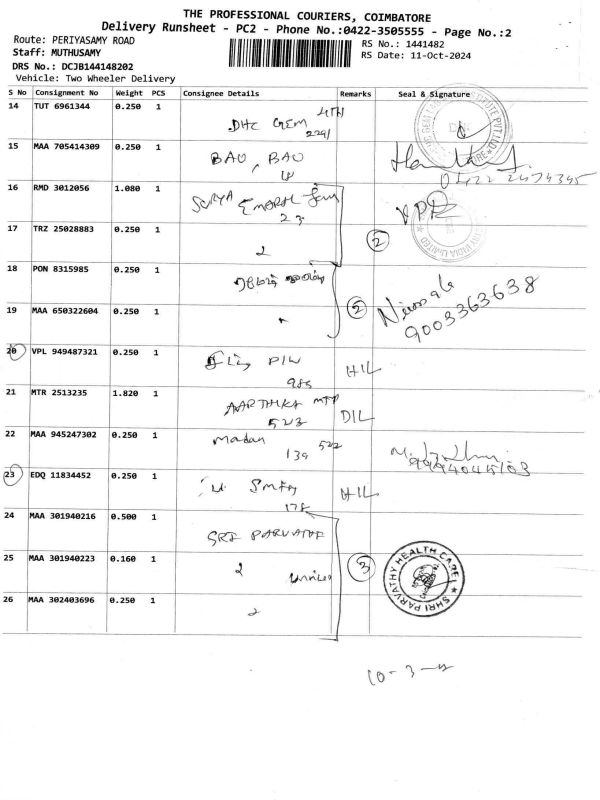 THE PROFESSIONAL COURIERS, COIMBATORE
Delivery Runsheet - PC2 - Phone No.:0422-3505555 - Page No.:2
Route: PERIYASAMY ROAD
RS No.: 1441482
Staff: MUTHUSAMY
RS Date: 11-Oct-2024
DRS No.: DCJB144148202
Vehicle: Two Wheeler Delivery
S No Consignment No Weight PCS Consignee Details Remarks Seal & Signature
14 TUT 6961344 0.250 1
DHC GEM
2291
15 MAA 705414309 0.250 1
BAU, BAU
0422 2474345
16 RMD 3012056 1.080 1
SURYA
23
17 TRZ 25028883 0.250 1
2
18 PON 8315985 0.250 1
19 MAA 650322604 0.250 1
2
9003363638
20 VPL 949487321 0.250 1
HIL
21 MTR 2513235 1.820 1
AARTHIKA MTP
523
DIL
22 MAA 945247302 0.250 1
madan 522
139
9994045103
23 EDQ 11834452 0.250 1
HIL
178
24 MAA 301940216 0.500 1
SRI PARVATHI
25 MAA 301940223 0.160 1
3
SHRI PARVATHY HEALTH CARE
26 MAA 302403696 0.250 1
10-3-